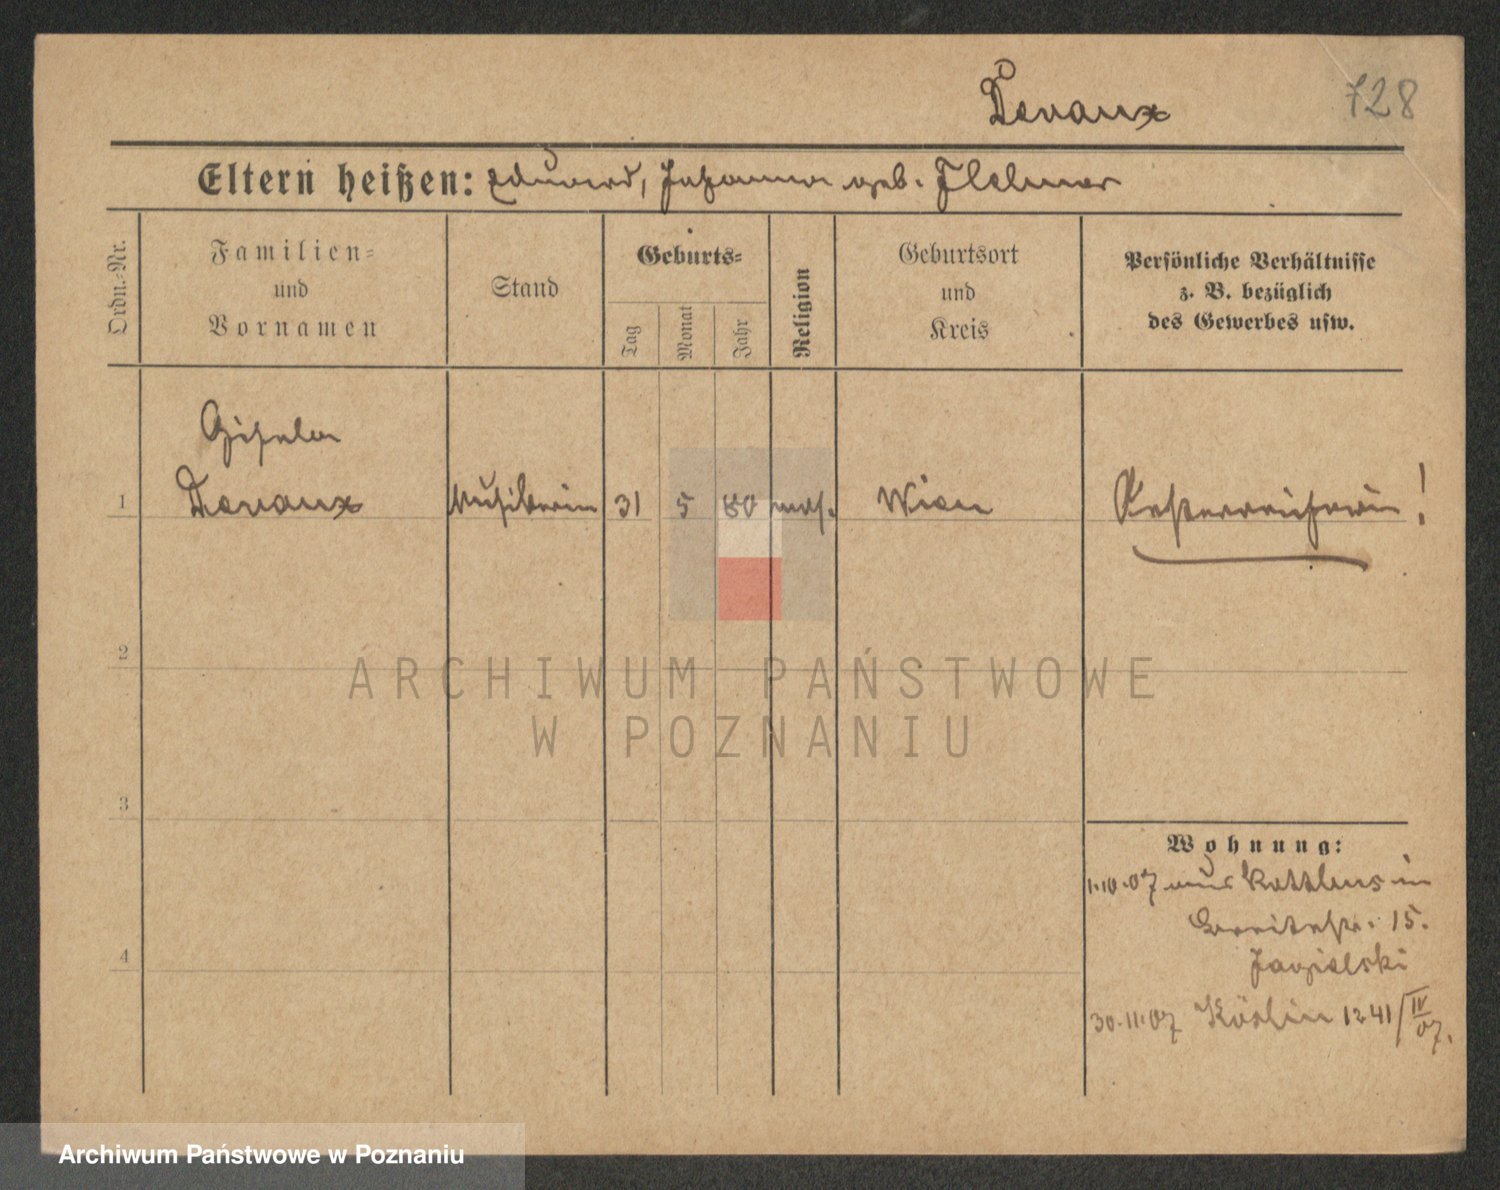 Devaux
728
Eltern heißen: Eduard, Johanna geb.
Ordn.-Nr.
Familien-
und
Vornamen
Stand
Geburts-
Tag
Monat
Jahr
Religion
Geburtsort
und
Kreis
Persönliche Verhältnisse
z. B. bezüglich
des Gewerbes usw.
Gisela
1 Devaux Musikerin 31 5 80 mos. Wien Oesterreicherin!
2
ARCHIWUM PAŃSTWOWE
W POZNANIU
3
Wohnung:
1.10.07 aus Kottbus in
Breitestr. 15.
Jagielski
4
30.11.07 Köslin 1241/IV
07.
Archiwum Państwowe w Poznaniu